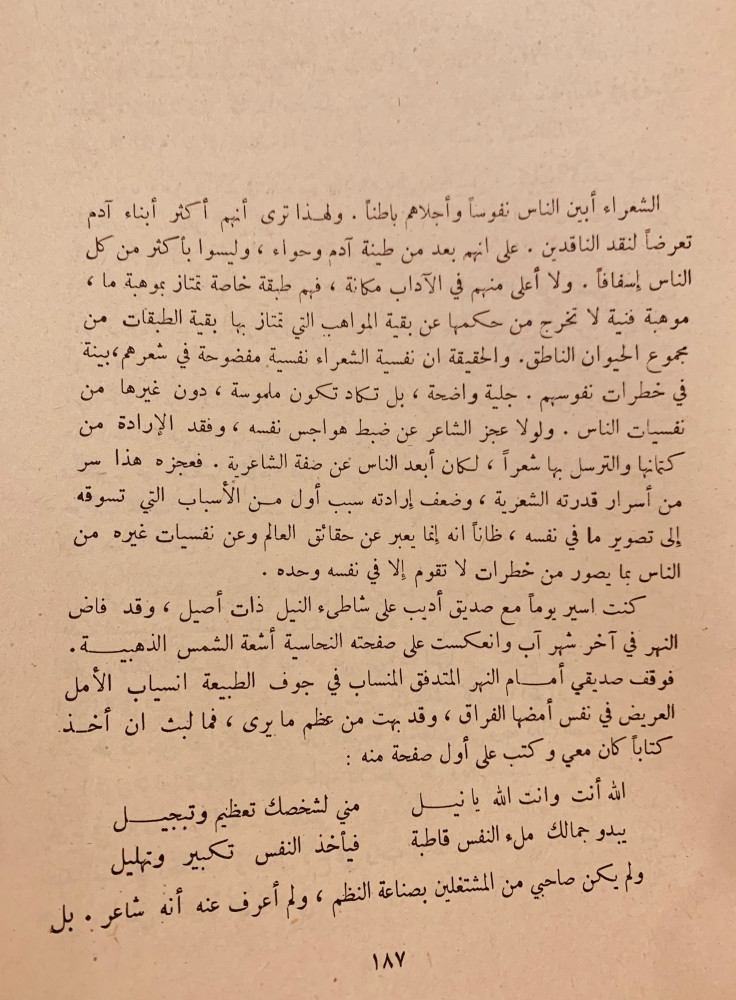 الشعراء أبين الناس نفوساً وأجلاهم باطناً . ولهـذا ترى أنهم أكثر أبناء آدم
تعرضاً لنقد الناقدين . على انهم بعد من طينة آدم وحواء ، وليسوا بأكثر من كل
الناس إسفافاً . ولا أعلى منهم في الآداب مكانة ، فهم طبقة خاصة تمتاز بموهبة ما ،
موهبة فنية لا تخرج من حكمها عن بقية المواهب التي تمتاز بها بقية الطبقات من
مجموع الحيوان الناطق. والحقيقة ان نفسية الشعراء نفسية مفضوحة في شعرهم،بينة
في خطرات نفوسهم . جلية واضحة ، بل تكاد تكون ملموسة ، دون غيرها من
نفسيات الناس . ولولا عجز الشاعر عن ضبط هواجس نفسه ، وفقد الإرادة من
كتمانها والترسل بها شعراً ، لكان أبعد الناس عن صفة الشاعرية . فعجزه هذا سر
من أسرار قدرته الشعرية ، وضعف إرادته سبب أول مـن الأسباب التي تسوقه
إلى تصوير ما في نفسه ، ظاناً انه إنما يعبر عن حقائق العالم وعن نفسيات غيره من
الناس بما يصور من خطرات لا تقوم إلا في نفسه وحده .
كنت اسير يوماً مع صديق أديب على شاطىء النيل ذات أصيل ، وقد فاض
النهر في آخر شهر آب وانعكست على صفحته النحاسية أشعة الشمس الذهبيـــة .
فوقف صديقي أمـــام النهر المتدفق المنساب في جوف الطبيعة انسياب الأمل
العريض في نفس أمضها الفراق ، وقد بهت من عظم ما يرى ، فما لبث ان أخـذ
كتاباً كان معي وكتب على أول صفحة منه :
الله أنت وانت الله يا نيـــل مني لشخصك تعظيم وتبجيـــل
يبدو جمالك ملء النفس قاطبة فيأخذ النفس تكبير وتهليل
ولم يكن صاحبي من المشتغلين بصناعة النظم ، ولم أعرف عنه أنه شاعر . بل
١٨٧